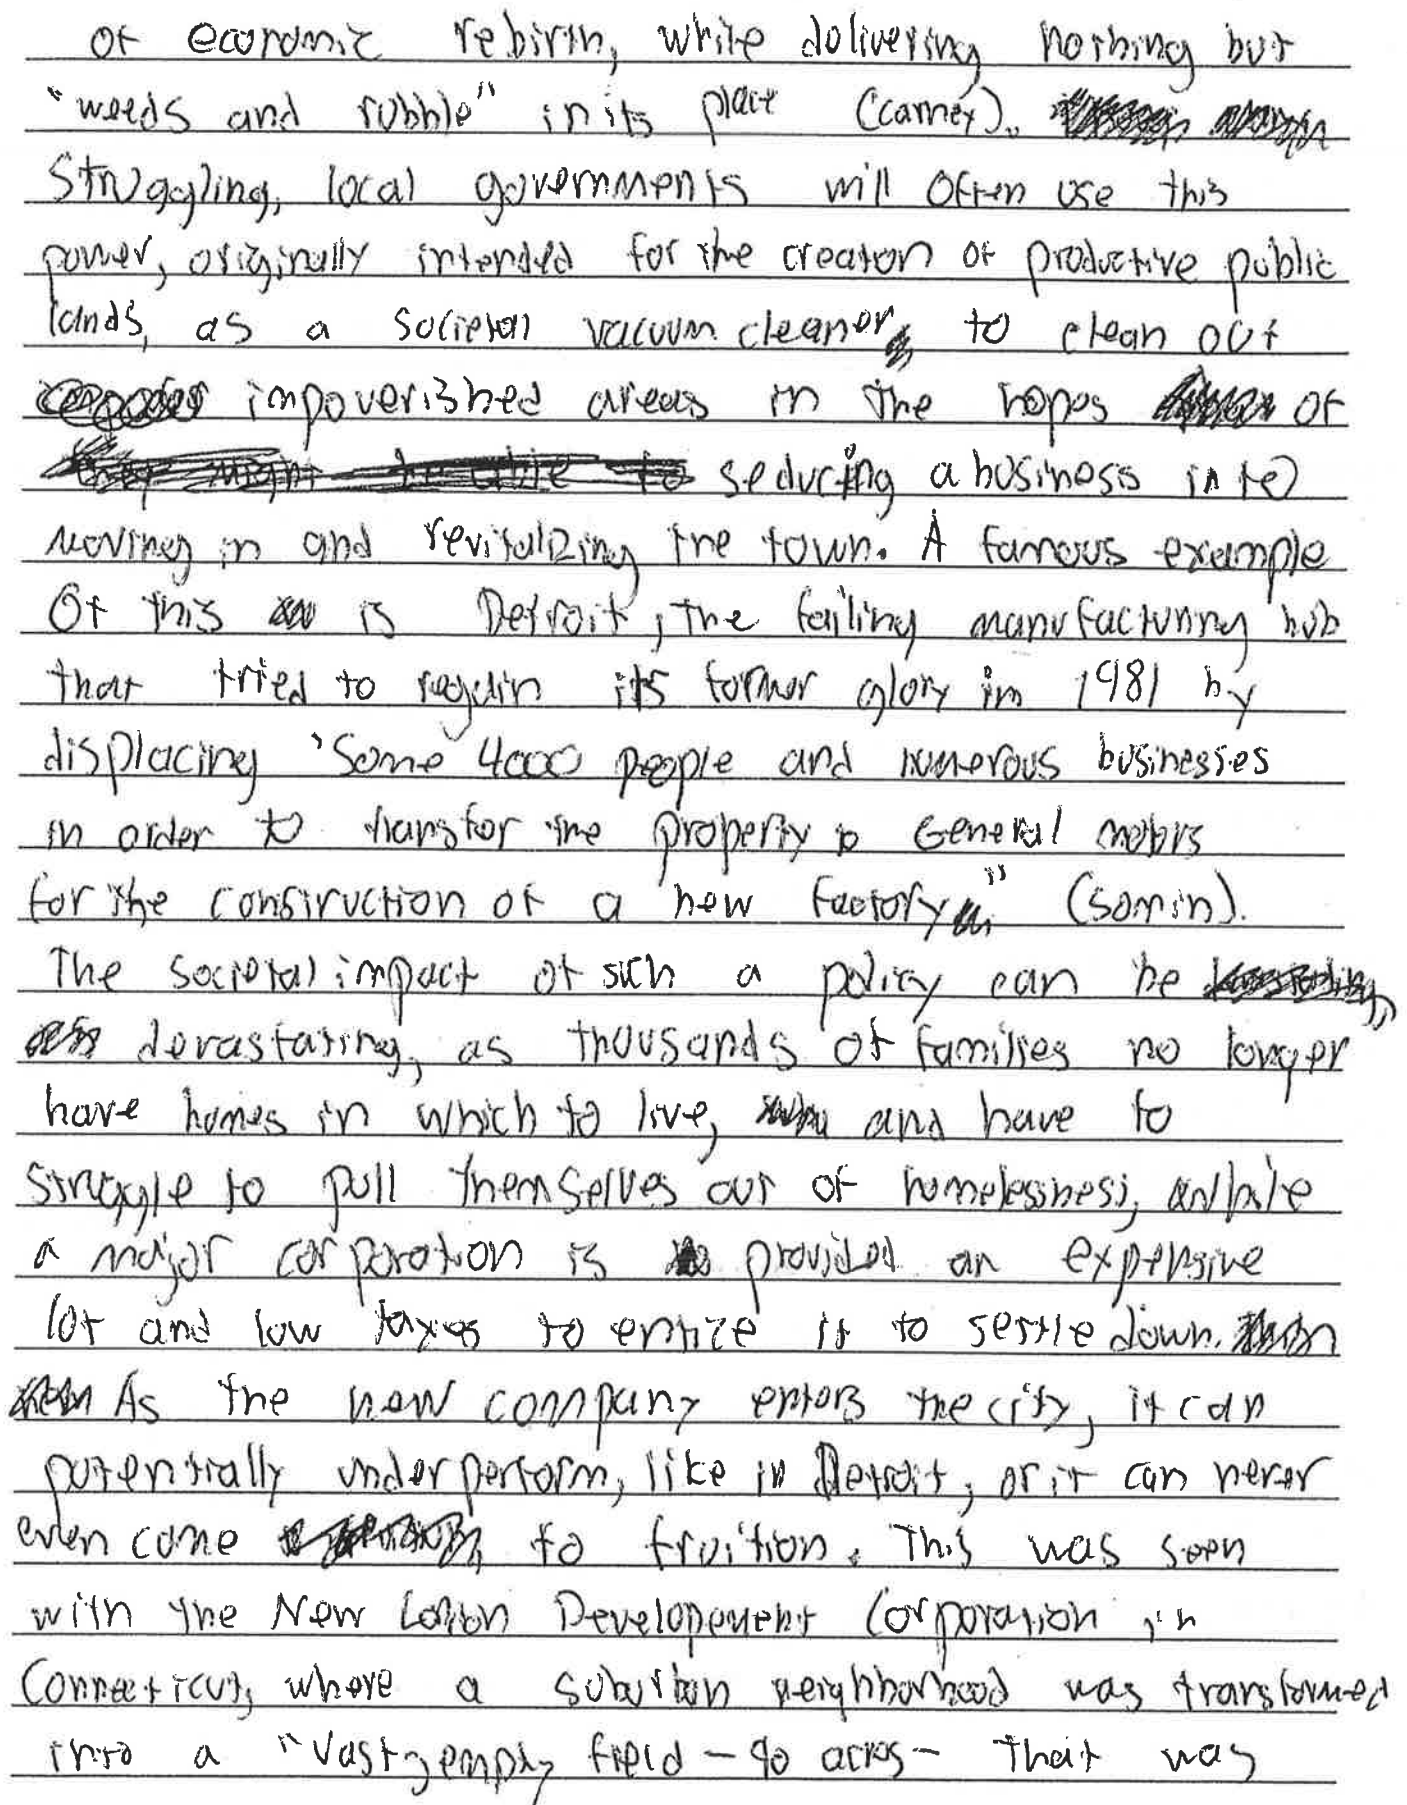 of economic rebirth, while delivering nothing but
"weeds and rubble" in its place (Carney).
Struggling, local governments will often use this
power, originally intended for the creation of productive public
lands, as a societal vacuum cleaner, to clean out
impoverished areas in the hopes of
seducing a business into
moving in and revitalizing the town. A famous example
Of this is Detroit, the failing manufacturing hub
that tried to regain its former glory in 1981 by
displacing "Some 4000 people and numerous businesses
in order to transfer the property to General motors
for the construction of a new factory" (Somin).
The societal impact of such a policy can be
devastating, as thousands of families no longer
have homes in which to live, and have to
struggle to pull themselves out of homelessness, while
a major corporation is provided an expensive
lot and low taxes to entice it to settle down.
As the new company enters the city, it can
potentially underperform, like in Detroit, or it can never
even come to fruition. This was seen
with the New London Development Corporation in
Connecticut, where a suburban neighborhood was transformed
into a "vast, empty field - 90 acres - that was